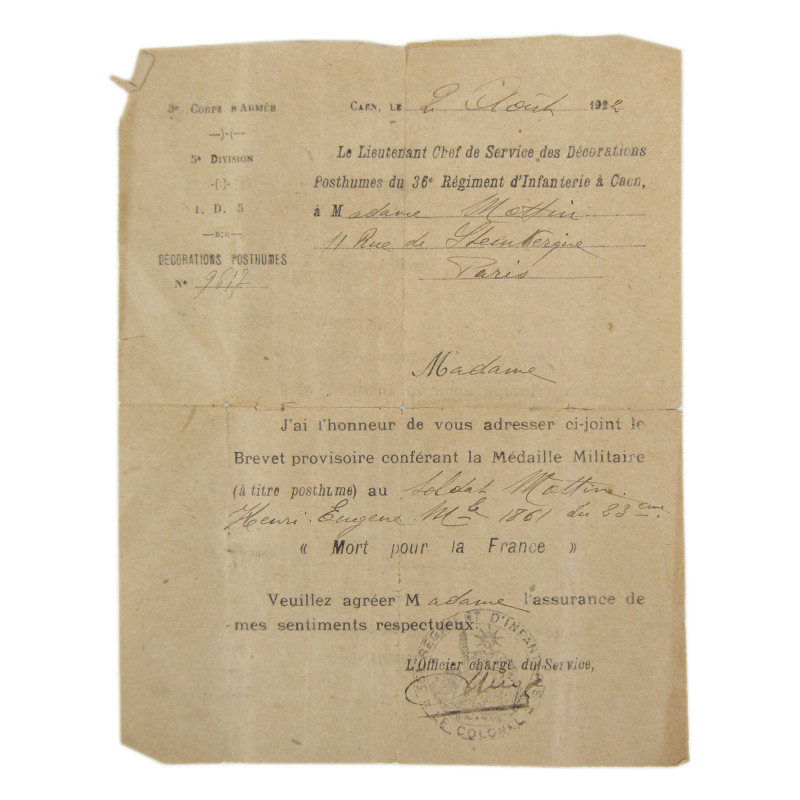 3e CORPS D'ARMÉE
5e DIVISION
I. D. 5
DÉCORATIONS POSTHUMES
No 9617
CAEN, LE 2 Août 1922
Le Lieutenant Chef de Service des Décorations
Posthumes du 36e Régiment d'Infanterie à Caen,
à Madame Mottin
11 Rue de Steinkerque
Paris
Madame
J'ai l'honneur de vous adresser ci-joint le
Brevet provisoire conférant la Médaille Militaire
(à titre posthume) au Soldat Mottin
Henri Eugene Mle 1861 du 23eme
« Mort pour la France »
Veuillez agréer Madame l'assurance de
mes sentiments respectueux.
L'Officier chargé du Service,
RÉGIMENT D'INFANTERIE
LE COLONEL